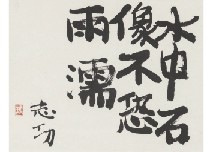 水中石
像不恐
雨濡
志功